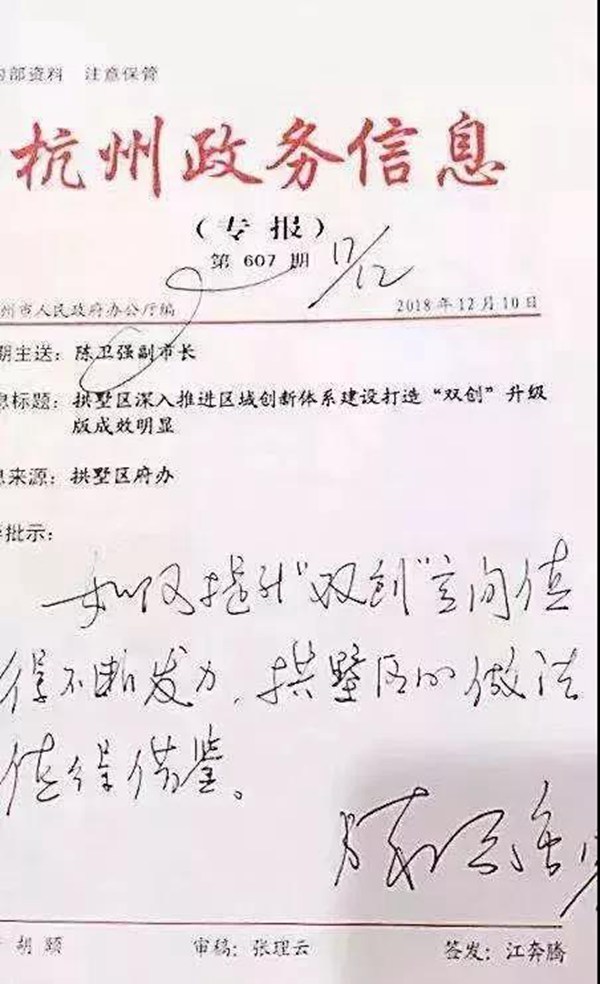 内部资料 注意保管
杭州政务信息
（专报）
第 607 期
17/12
2018年12月10日
州市人民政府办公厅编
期主送：陈卫强副市长
息标题：拱墅区深入推进区域创新体系建设打造“双创”升级
版成效明显
息来源：拱墅区府办
批示：
如何提升“双创”空间值
得不断发力，拱墅区的做法
值得借鉴。
胡颖
审稿：张理云
签发：江奔腾